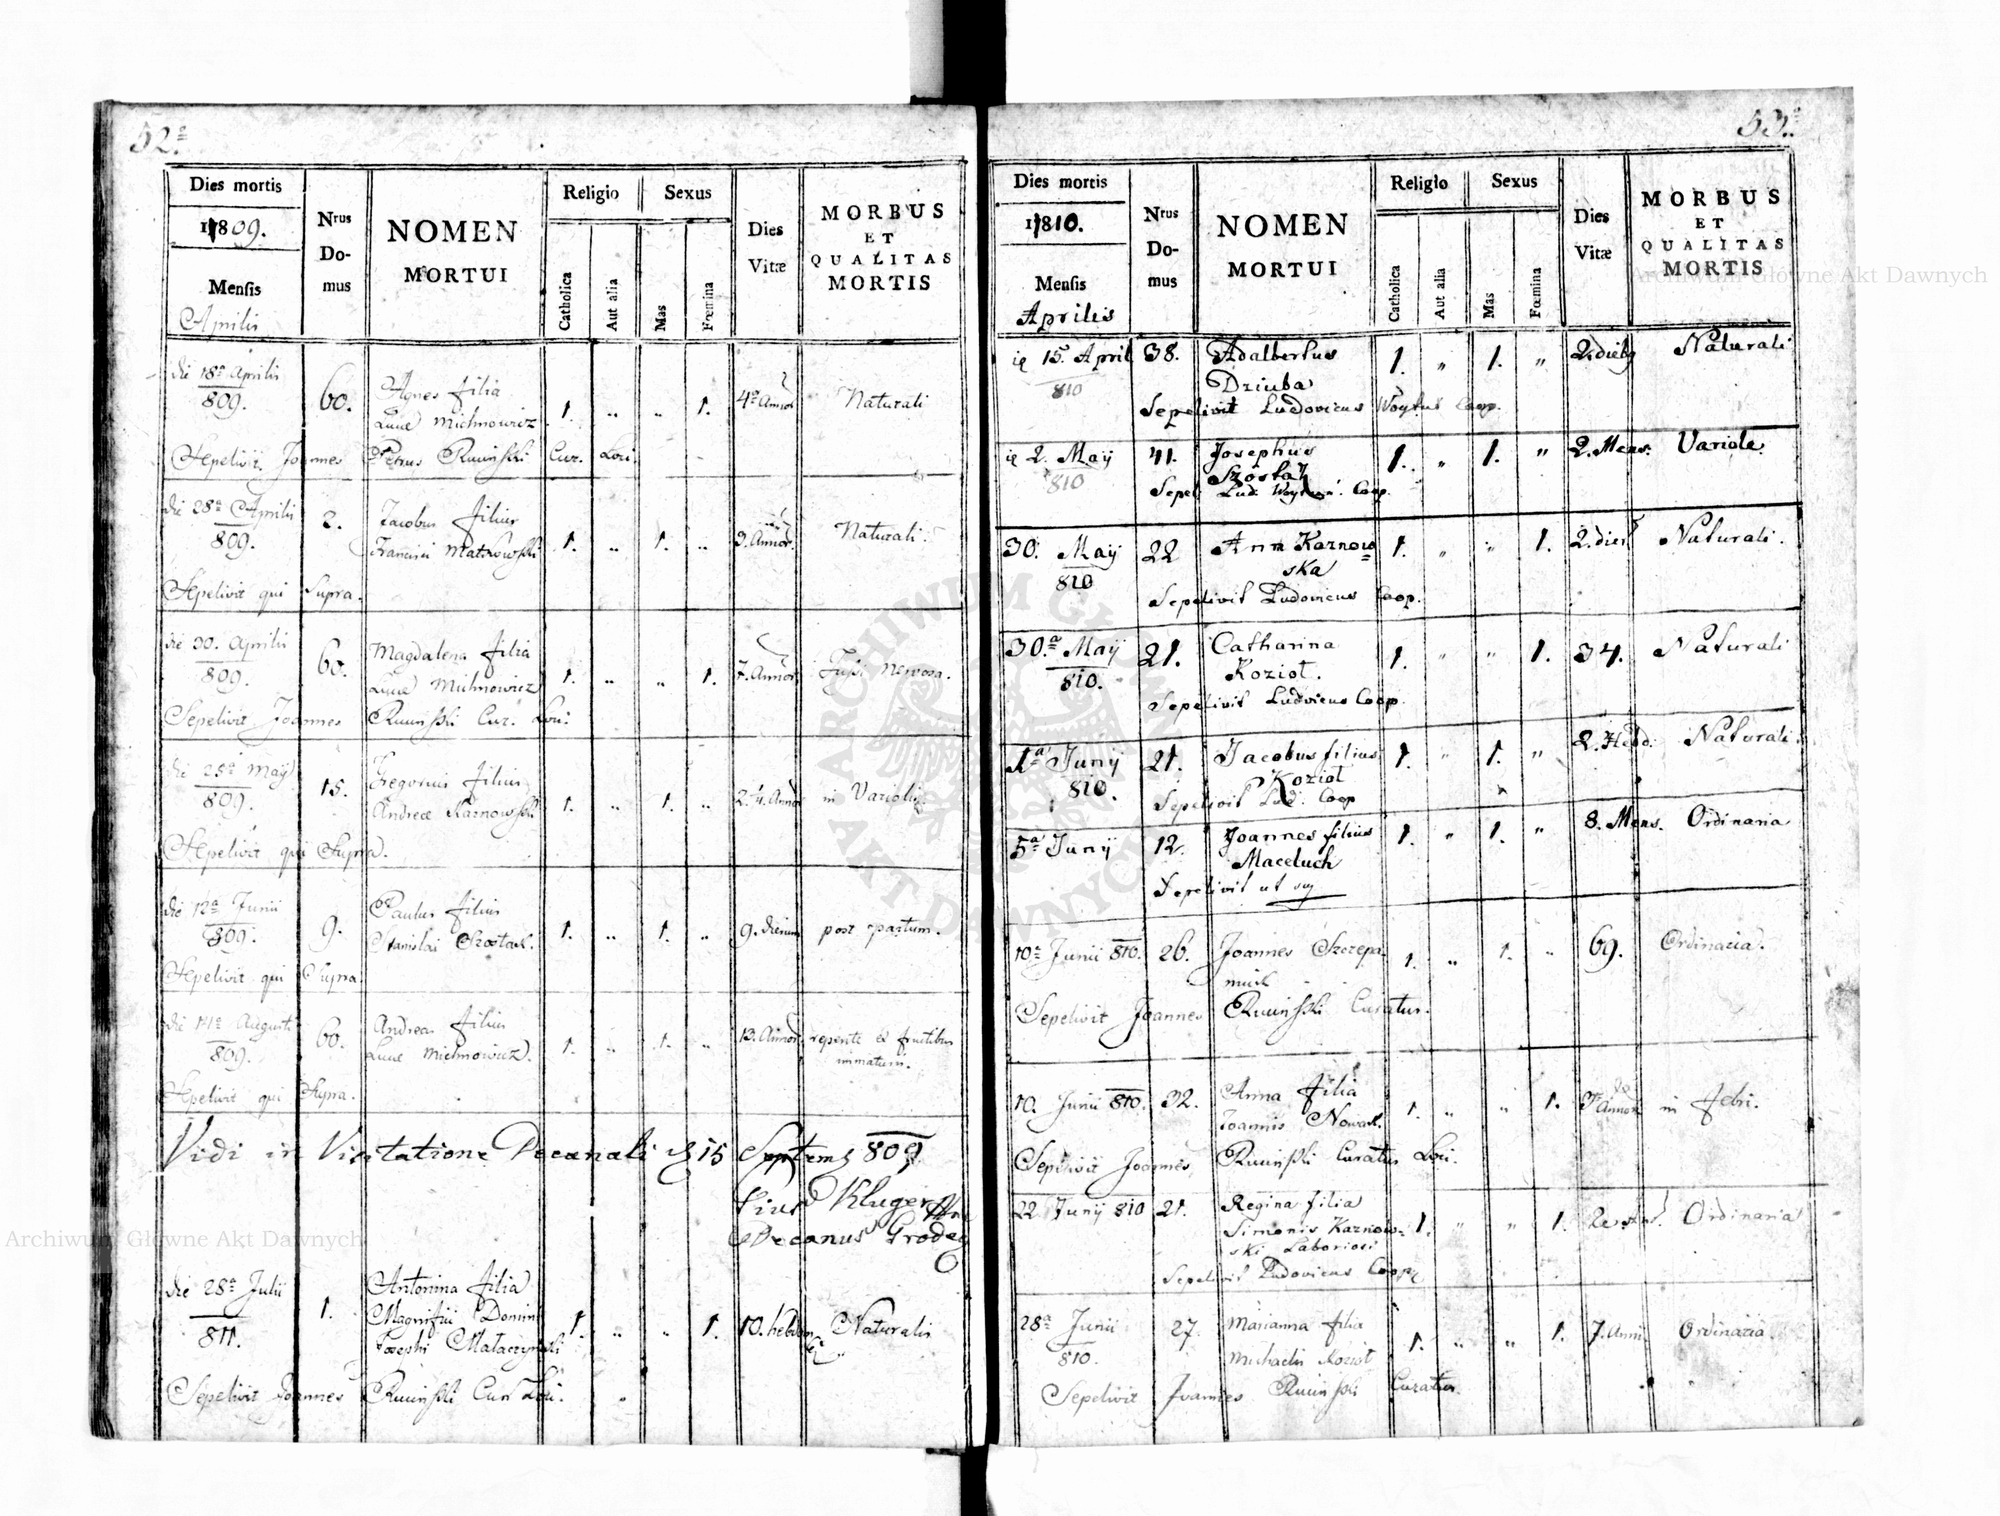 52.
Dies mortis
1809.
Mensis
Aprilis
Nrus
Do-
mus
NOMEN
MORTUI
Religio
Catholica
Aut alia
Sexus
Mas
Fœmina
Dies
Vitæ
MORBUS
ET
QUALITAS
MORTIS
die 18a Aprilis
809.
60.
Agnes filia
Lucæ Michnowicz
1. „ „ 1.
Naturali
Sepelivit Joannes Petrus Ruciński Cur. Loci
die 28a Aprilis
809.
2.
Jacobus filius
Francisci Matkowski
1. „ 1. „
Naturali.
Sepelivit qui Supra.
die 30. Aprilis
809.
60.
Magdalena filia
Lucæ Michnowicz
1. „ „ 1.
7. Annor.
nervosa.
Sepelivit Joannes Ruciński Cur. Loci.
die 25a Maÿ
809.
15.
Gregorius filius
Andreæ Kaznowski
1. „ 1. „
in Variolis.
Sepelivit qui Supra.
die 12a Junii
809.
9.
Paulus filius
Stanislai Szostak.
1. „ 1. „
9. dierum
post partum.
Sepelivit qui Supra.
Augusti
809.
60.
Andreas filius
Lucæ Michnowicz.
1. „ 1. „
13. Annor.
repente ex fructibus
Sepelivit qui Supra.
Vidi in Visitatione Decanali 15 Septemb 809
Pius Kluger
Decanus Grodeg
die 28a Julii
811.
1.
Antonina filia
Magnifici Domini
Josephi
1. „ „ 1.
10. hebdom
Naturalis
Sepelivit Joannes Ruciński Cur Loci.
53.
Dies mortis
1810.
Mensis
Aprilis
Nrus
Do-
mus
NOMEN
MORTUI
Religio
Catholica
Aut alia
Sexus
Mas
Fœmina
Dies
Vitæ
MORBUS
ET
QUALITAS
MORTIS
15. April
810
38.
Adalbertus
Dziuba
1. „ 1. „
Naturali
Sepelivit Ludovicus Coop.
2. May
810
41.
Josephus
Szóstak
1. „ 1. „
2. Mens.
Variole
Sepel Lud: Coop.
30. Maÿ
810
22
Anna Kaznow=
ska
1. „ „ 1.
2. dier
Naturali.
Sepelivit Ludovicus Coop.
30.a Maÿ
810.
21.
Catharina
Kozioł.
1. „ „ 1.
34.
Naturali
Sepelivit Ludovicus Coop.
1a Junÿ
810.
21.
Jacobus filius
Kozioł
1. „ 1. „
2. Hebd:
Naturali.
Sepelivit Lud: Coop
5a Junÿ
12.
Joannes filius
Maceluch
1. „ 1. „
8. Mens.
Ordinaria
Sepelivit ut sup
10a Junii 810.
26.
Joannes Szczepa
niak
1. „ 1. „
69.
Ordinaria.
Sepelivit Joannes Ruciński Curatus.
10. Junii 810.
32.
Anna filia
Joannis Nowak.
1. „ „ 1.
in febri.
Sepelivit Joannes Ruciński Curatus Loci.
22 Junÿ 810
21.
Regina filia
Simonis Kaznow=
ski Laboriosi
1. „ „ 1.
Ordinaria
Sepelivit Ludovicus Coop
28a Junii
810.
27.
Marianna filia
Michaelis Kozioł
1. „ „ 1.
7. Anni
Ordinaria.
Sepelivit Joannes Ruciński Curatus.
Archiwum Główne Akt Dawnych
Archiwum Główne Akt Dawnych
ARCHIWUM GŁÓWNE AKT DAWNYCH